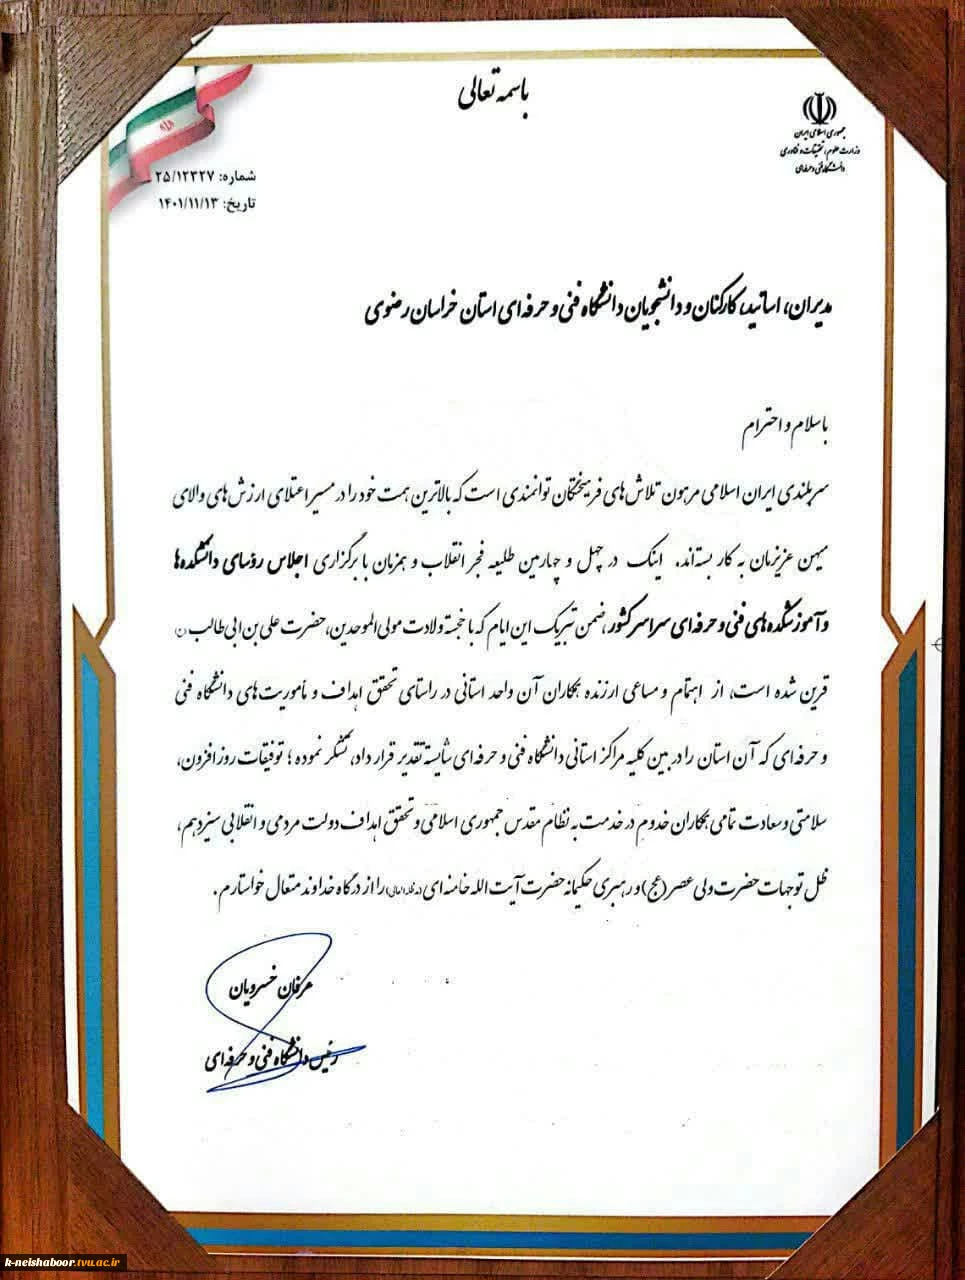 باسمه تعالی
جمهوری اسلامی ایران
وزارت علوم، تحقیقات و فناوری
دانشگاه فنی و حرفه‌ای
شماره: ۲۵/۱۲۳۲۷
تاریخ: ۱۴۰۱/۱۱/۱۳
مدیران، اساتید، کارکنان و دانشجویان دانشگاه فنی و حرفه‌ای استان خراسان رضوی
باسلام و احترام
سربلندی ایران اسلامی مرهون تلاش‌های فرهیختگان توانمندی است که بالاترین همت خود را در مسیر اعتلای ارزش‌های والای
میهن عزیزمان به کار بسته‌اند. اینک در چهل و چهارمین طلیعه فجر انقلاب و همزمان با برگزاری اجلاس رؤسای دانشکده‌ها
و آموزشکده‌های فنی و حرفه‌ای سراسر کشور، ضمن تبریک این ایام که با خجسته ولادت مولی الموحدین، حضرت علی بن ابی طالب
قرین شده است، از اهتمام و مساعی ارزنده همکاران آن واحد استانی در راستای تحقق اهداف و مأموریت‌های دانشگاه فنی
و حرفه‌ای که آن استان را در بین کلیه مراکز استانی دانشگاه فنی و حرفه‌ای شایسته تقدیر قرار داد، تشکر نموده؛ توفیقات روزافزون،
سلامتی و سعادت تمامی همکاران خدوم در خدمت به نظام مقدس جمهوری اسلامی و تحقق اهداف دولت مردمی و انقلابی سیزدهم،
ظل توجهات حضرت ولی عصر (عج) و رهبری حکیمانه حضرت آیت الله خامنه‌ای (مدظله‌العالی) را از درگاه خداوند متعال خواستارم.
عرفان خسرویان
رئیس دانشگاه فنی و حرفه‌ای
k-neishaboor.tvu.ac.ir